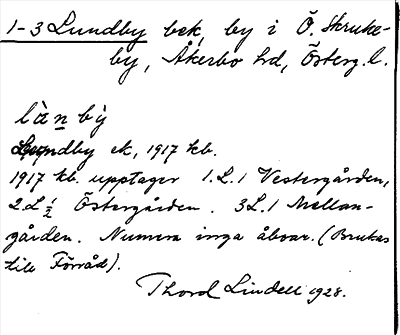 1-3 Lundby bek, by i Ö. Skruke-
by, Åkerbo hd, Österg. l.
làn bỳ
Lundby ek, 1917 kb.
1917 kb. upptager 1. L. 1 Vestergården,
2. L ½ Östergården. 3 L. 1 Mellan-
gården. Numera inga åboar. (Brukas
till Förråd).
Thord Lindell 1928.